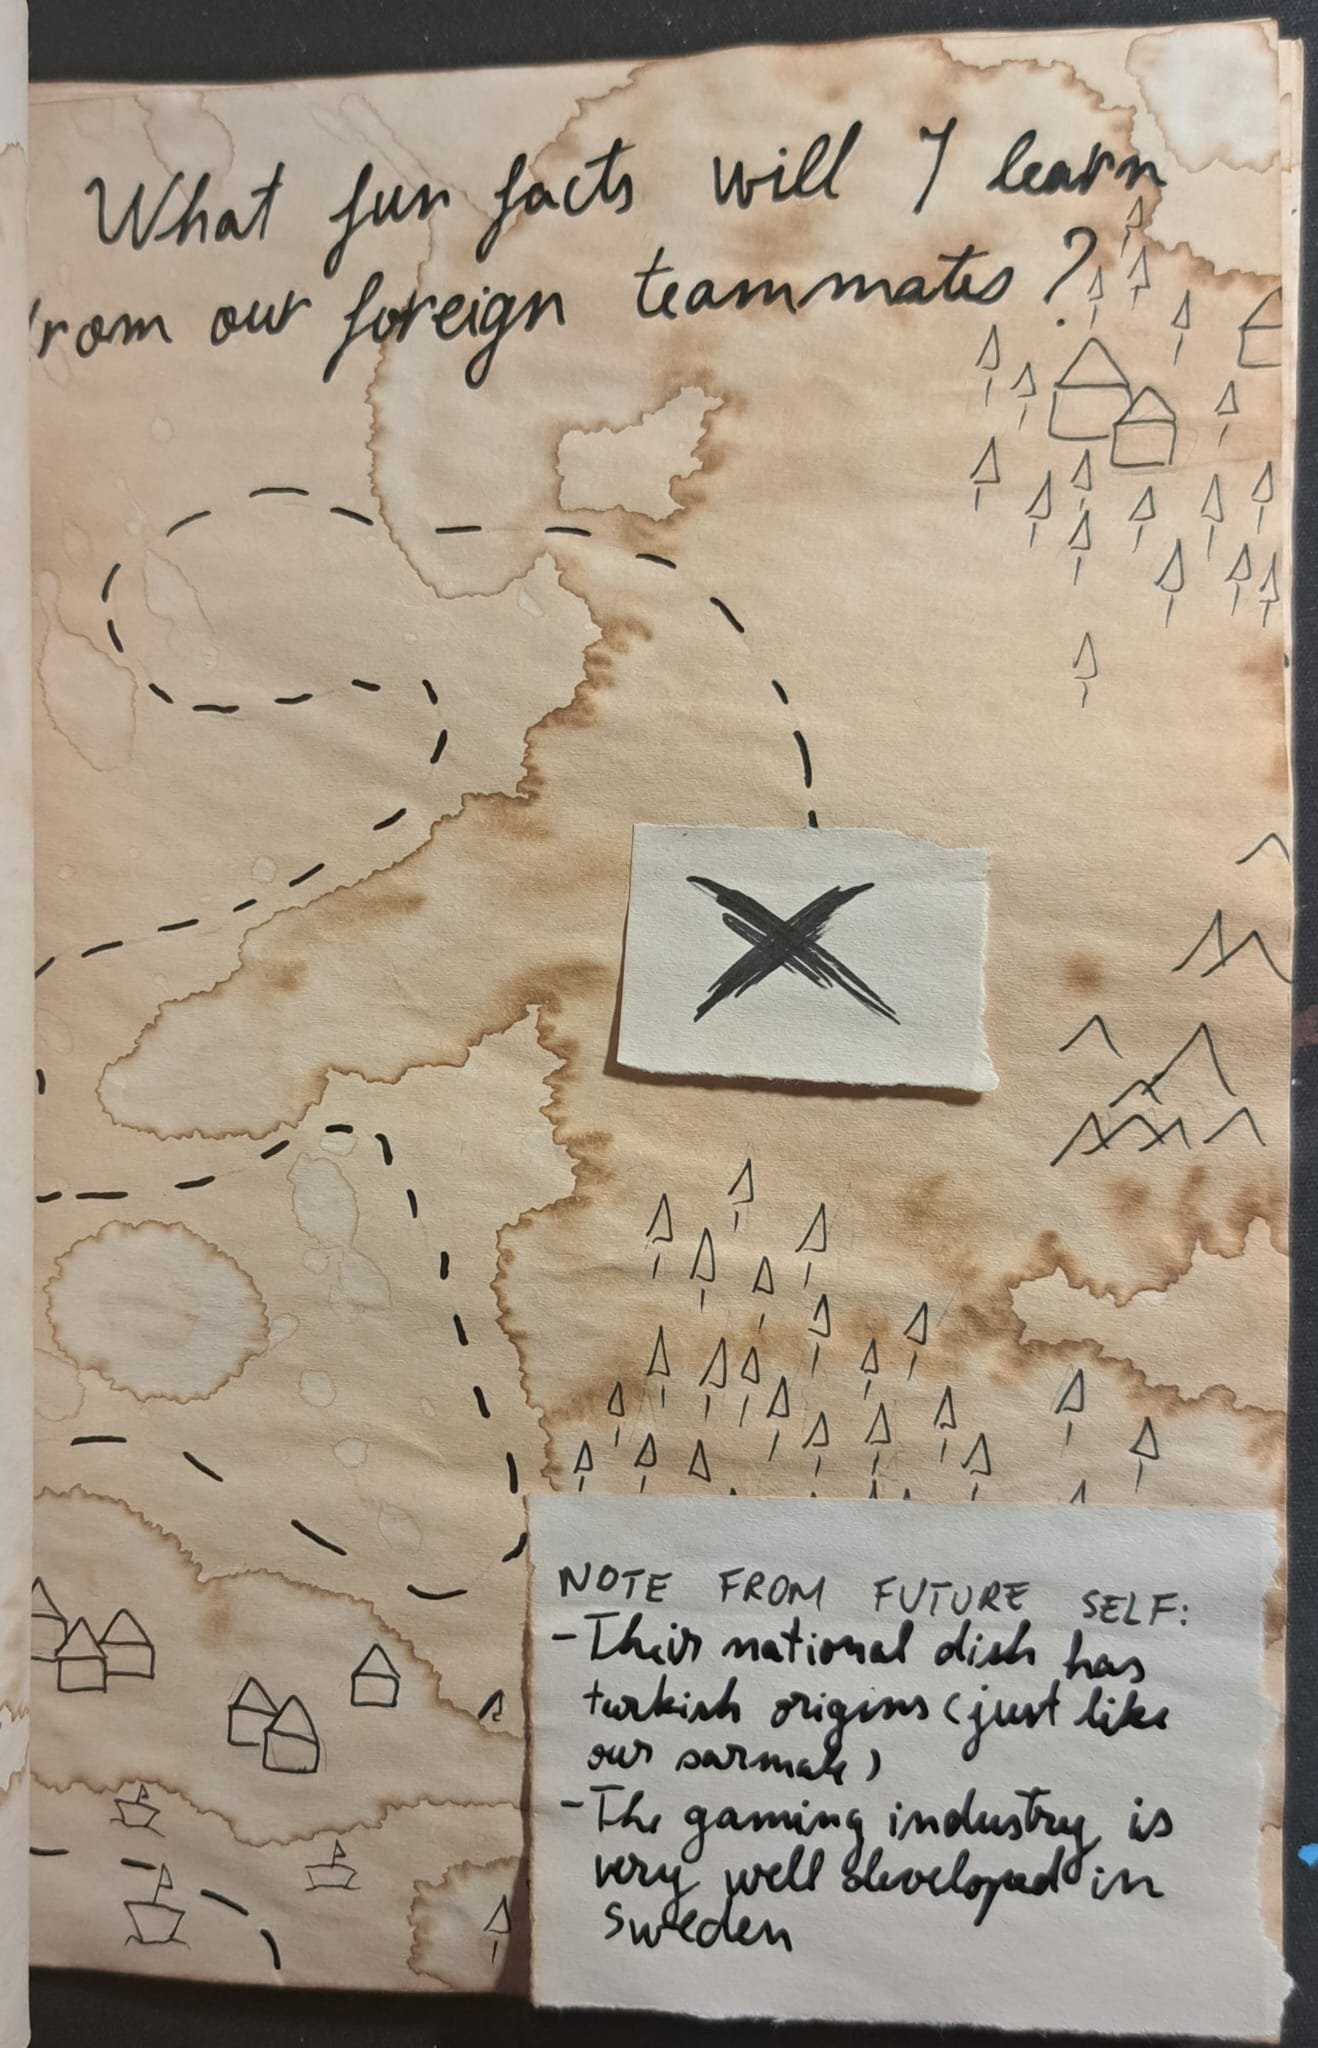 What fun facts will I learn
from our foreign teammates?
NOTE FROM FUTURE SELF:
-Their national dish has
turkish origins (just like
our sarmale)
-The gaming industry is
very well developed in
sweden